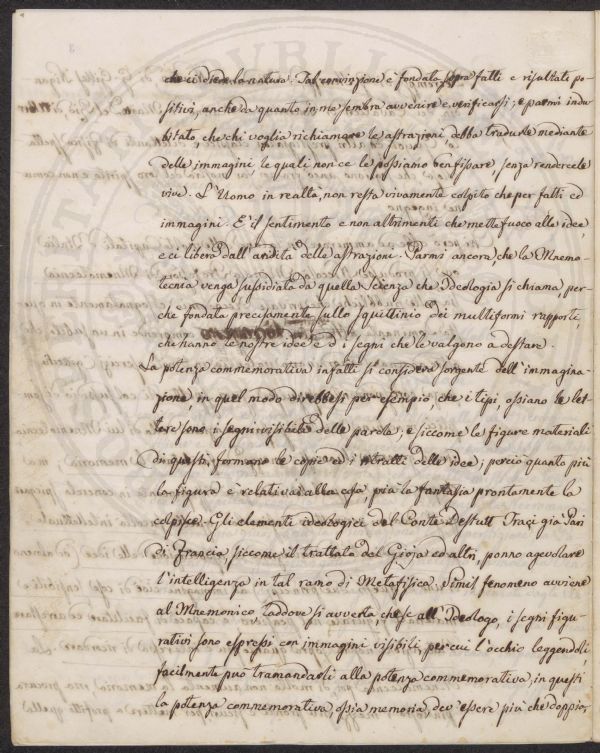 che ci diede la natura. Tal convinzione è fondata sopra fatti e risultati po-
sitivi, anche da quanto in me sembra avvenire e verificarsi; e parmi indu-
bitato, che chi voglia richiamare le astrazioni, debba tradurle mediante
delle immagini le quali non ce le possiamo ben fissare, senza rendercele
vive. L'Uomo in realtà, non resta vivamente colpito che per fatti ed
immagini. E' il sentimento e non altrimenti che mette fuoco alle idee,
e ci libera dall'aridità delle astrazioni. Parmi ancora, che la Mnemo-
tecnia venga sussidiata da quella Scienza che Ideologia si chiama, per-
chè fondata precisamente sullo squittinio dei multiformi rapporti,
che hanno le nostre idee e di i segni che le valgono a destare.
La potenza commemorativa infatti si considera sorgente dell'immagina-
zione, in quel modo direbbesi per esempio, che i tipi, ossiano le let-
tere sono i segni visibili delle parole; e siccome le figure materiali
di questi, formano le copie ed i ritratti delle idee; perciò quanto più
la figura è relativa alla cosa, più la fantasia prontamente la
colpisce. Gli elementi ideologici del Conte Destutt Traçi già Pari
di Francia, siccome il trattato del Gioja ed altri, ponno agevolare
l'intelligenza in tal ramo di Metafisica. Simil fenomeno avviene
al Mnemonico, laddove si avverta, che se all'Ideologo, i segni figu-
rativi sono espressi con immagini visibili, per cui l'occhio leggendoli,
facilmente può tramandarli alla potenza commemorativa, in questi
la potenza commemorativa, ossia memoria, dev'essere più che doppia,